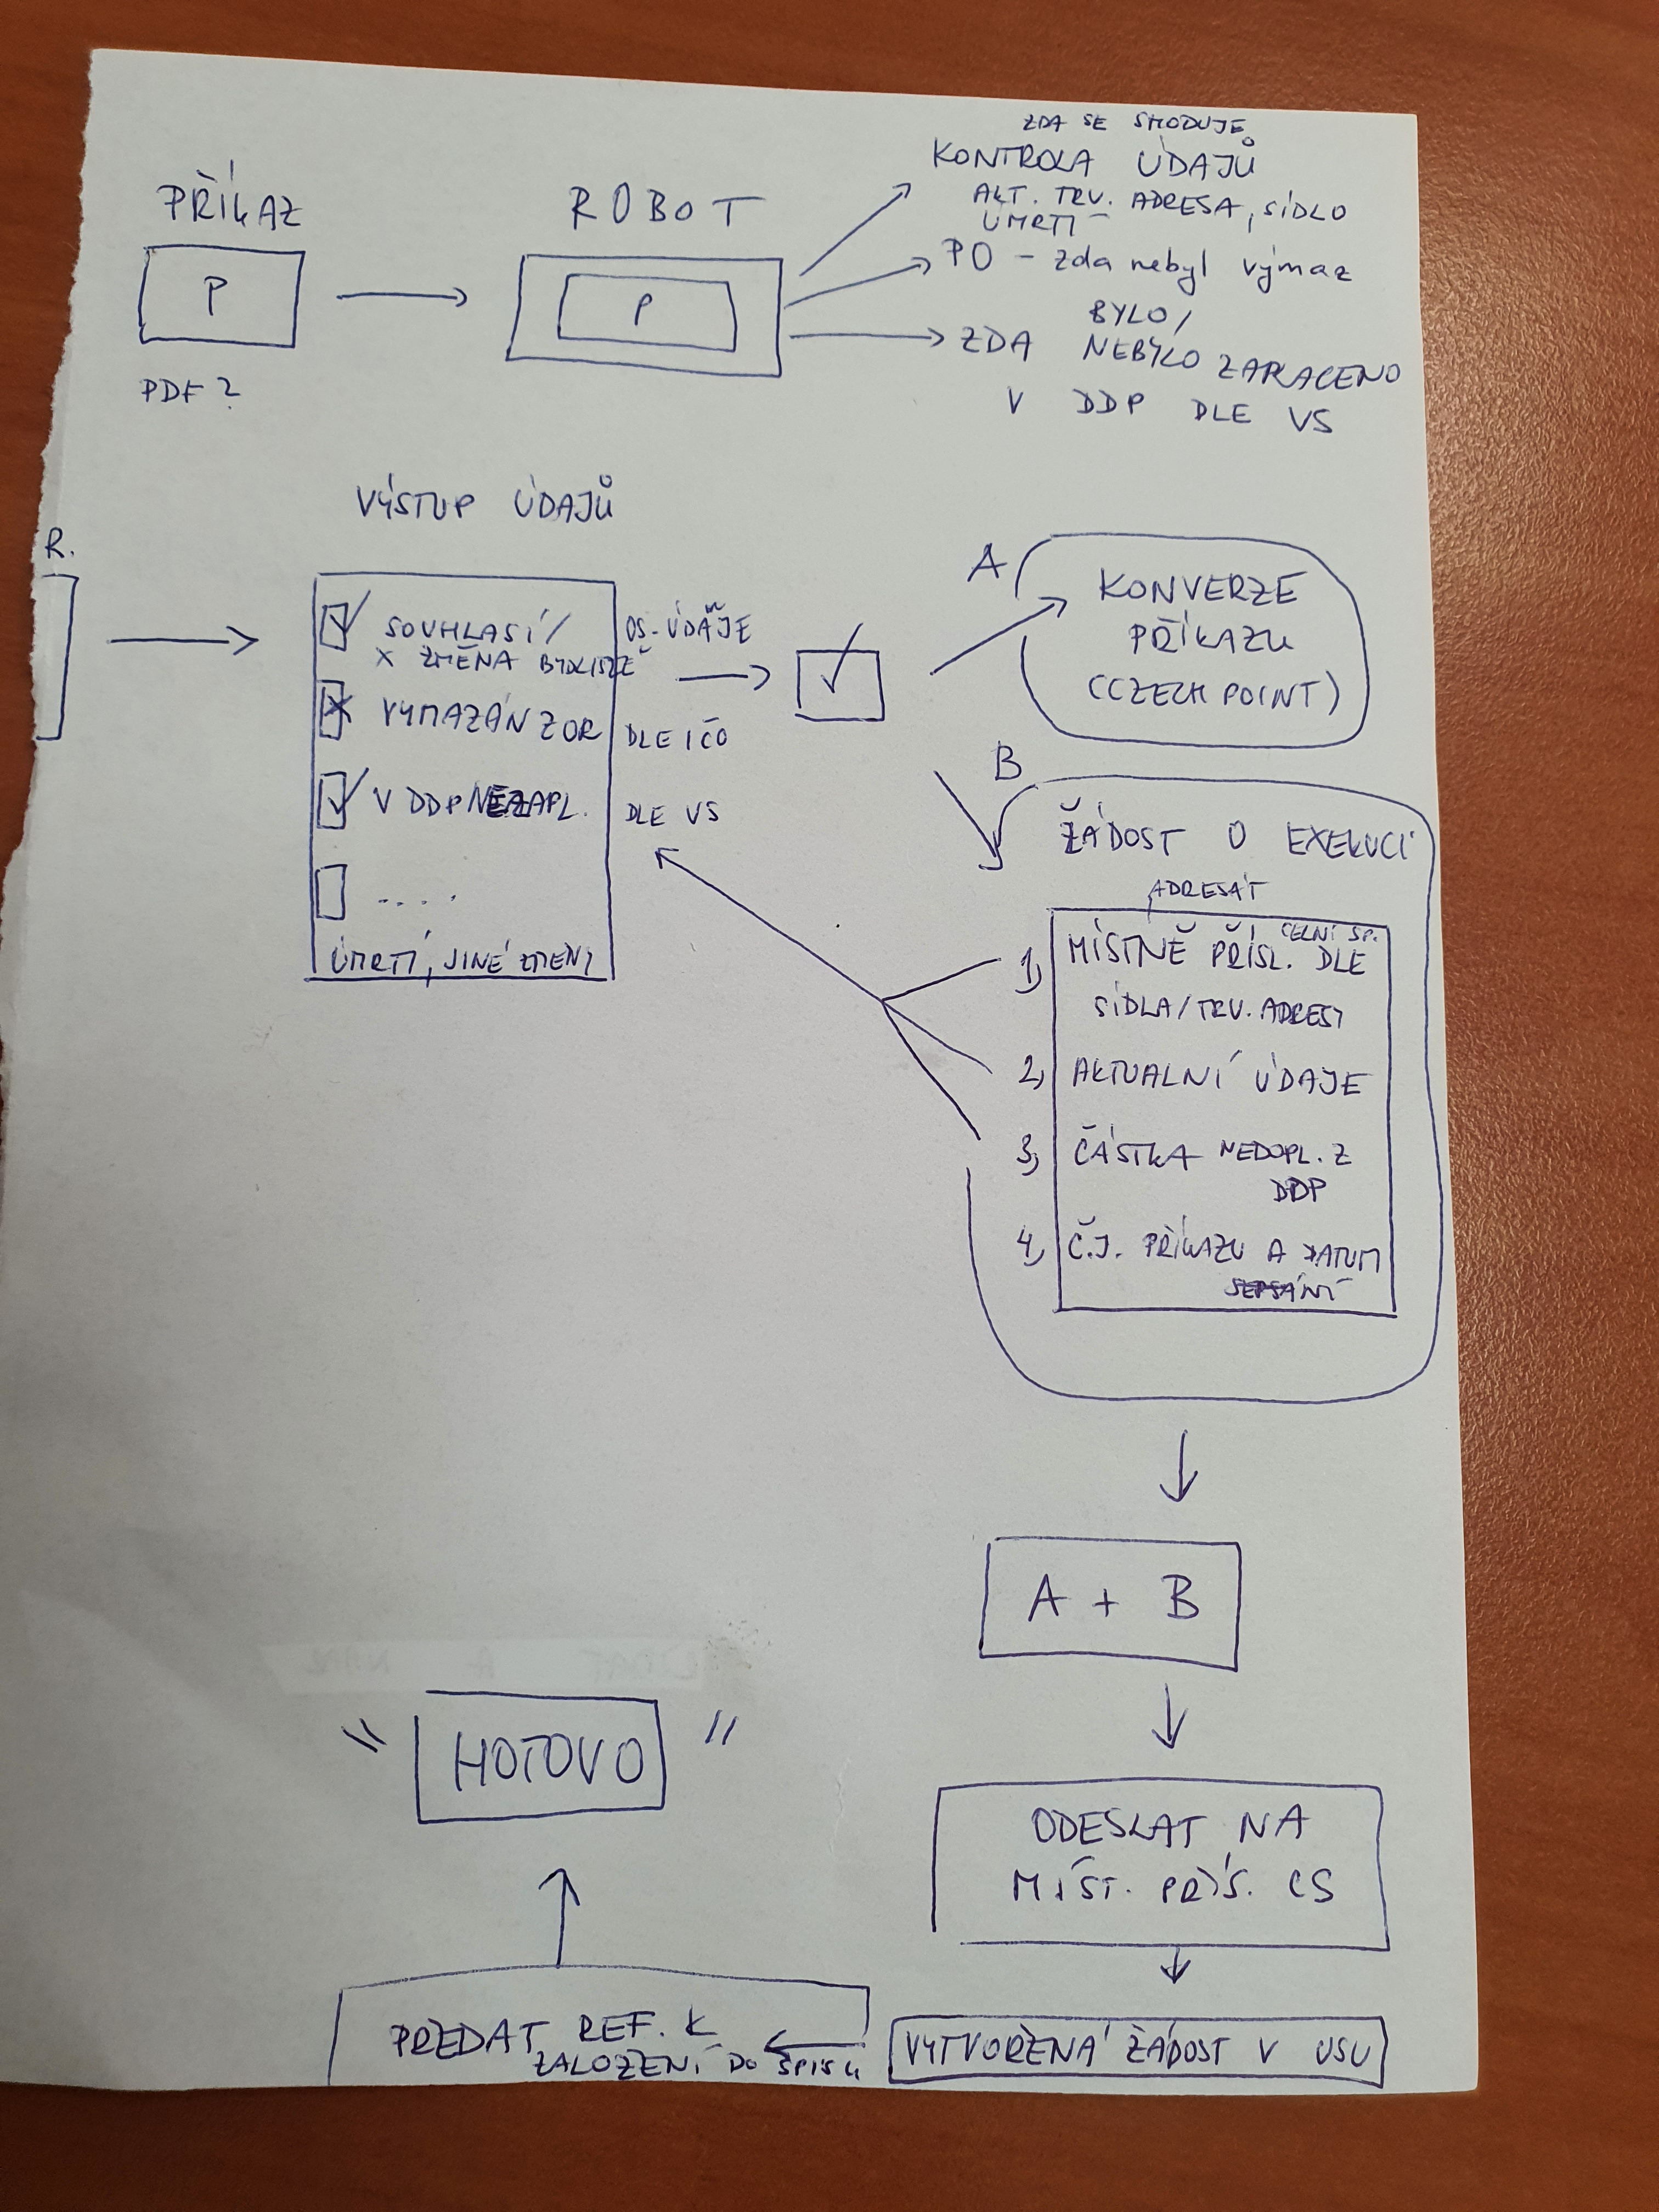 PŘÍKAZ
P
PDF?
ROBOT
P
ZDA SE SHODUJE
KONTROLA ÚDAJŮ
AKT. TRV. ADRESA, SÍDLO
ÚMRTÍ
PO - zda nebyl výmaz
BYLO/
ZDA NEBYLO ZAPLACENO
V DDP DLE VS
VÝSTUP ÚDAJŮ
R.
SOUHLASÍ/ OS. ÚDAJE
X ZMĚNA BYDLIŠTĚ
VYMAZÁN Z OR DLE IČO
V DDP NEZAPL. DLE VS
....
ÚMRTÍ, JINÉ ZMĚNY
A
KONVERZE
PŘÍKAZU
(CZECH POINT)
B
ŽÁDOST O EXEKUCI
ADRESÁT
1, MÍSTNĚ PŘÍSL. CELNÍ SP. DLE
SÍDLA/TRV. ADRESY
2, AKTUALNÍ ÚDAJE
3, ČÁSTKA NEDOPL. Z
DDP
4, Č.J. PŘÍKAZU A DATUM
SEPSÁNÍ
A + B
ODESLAT NA
MÍST. PŘÍS. CS
VYTVOŘENÁ ŽÁDOST V USU
PŘEDAT REF. K
ZALOŽENÍ DO SPISU
"HOTOVO"